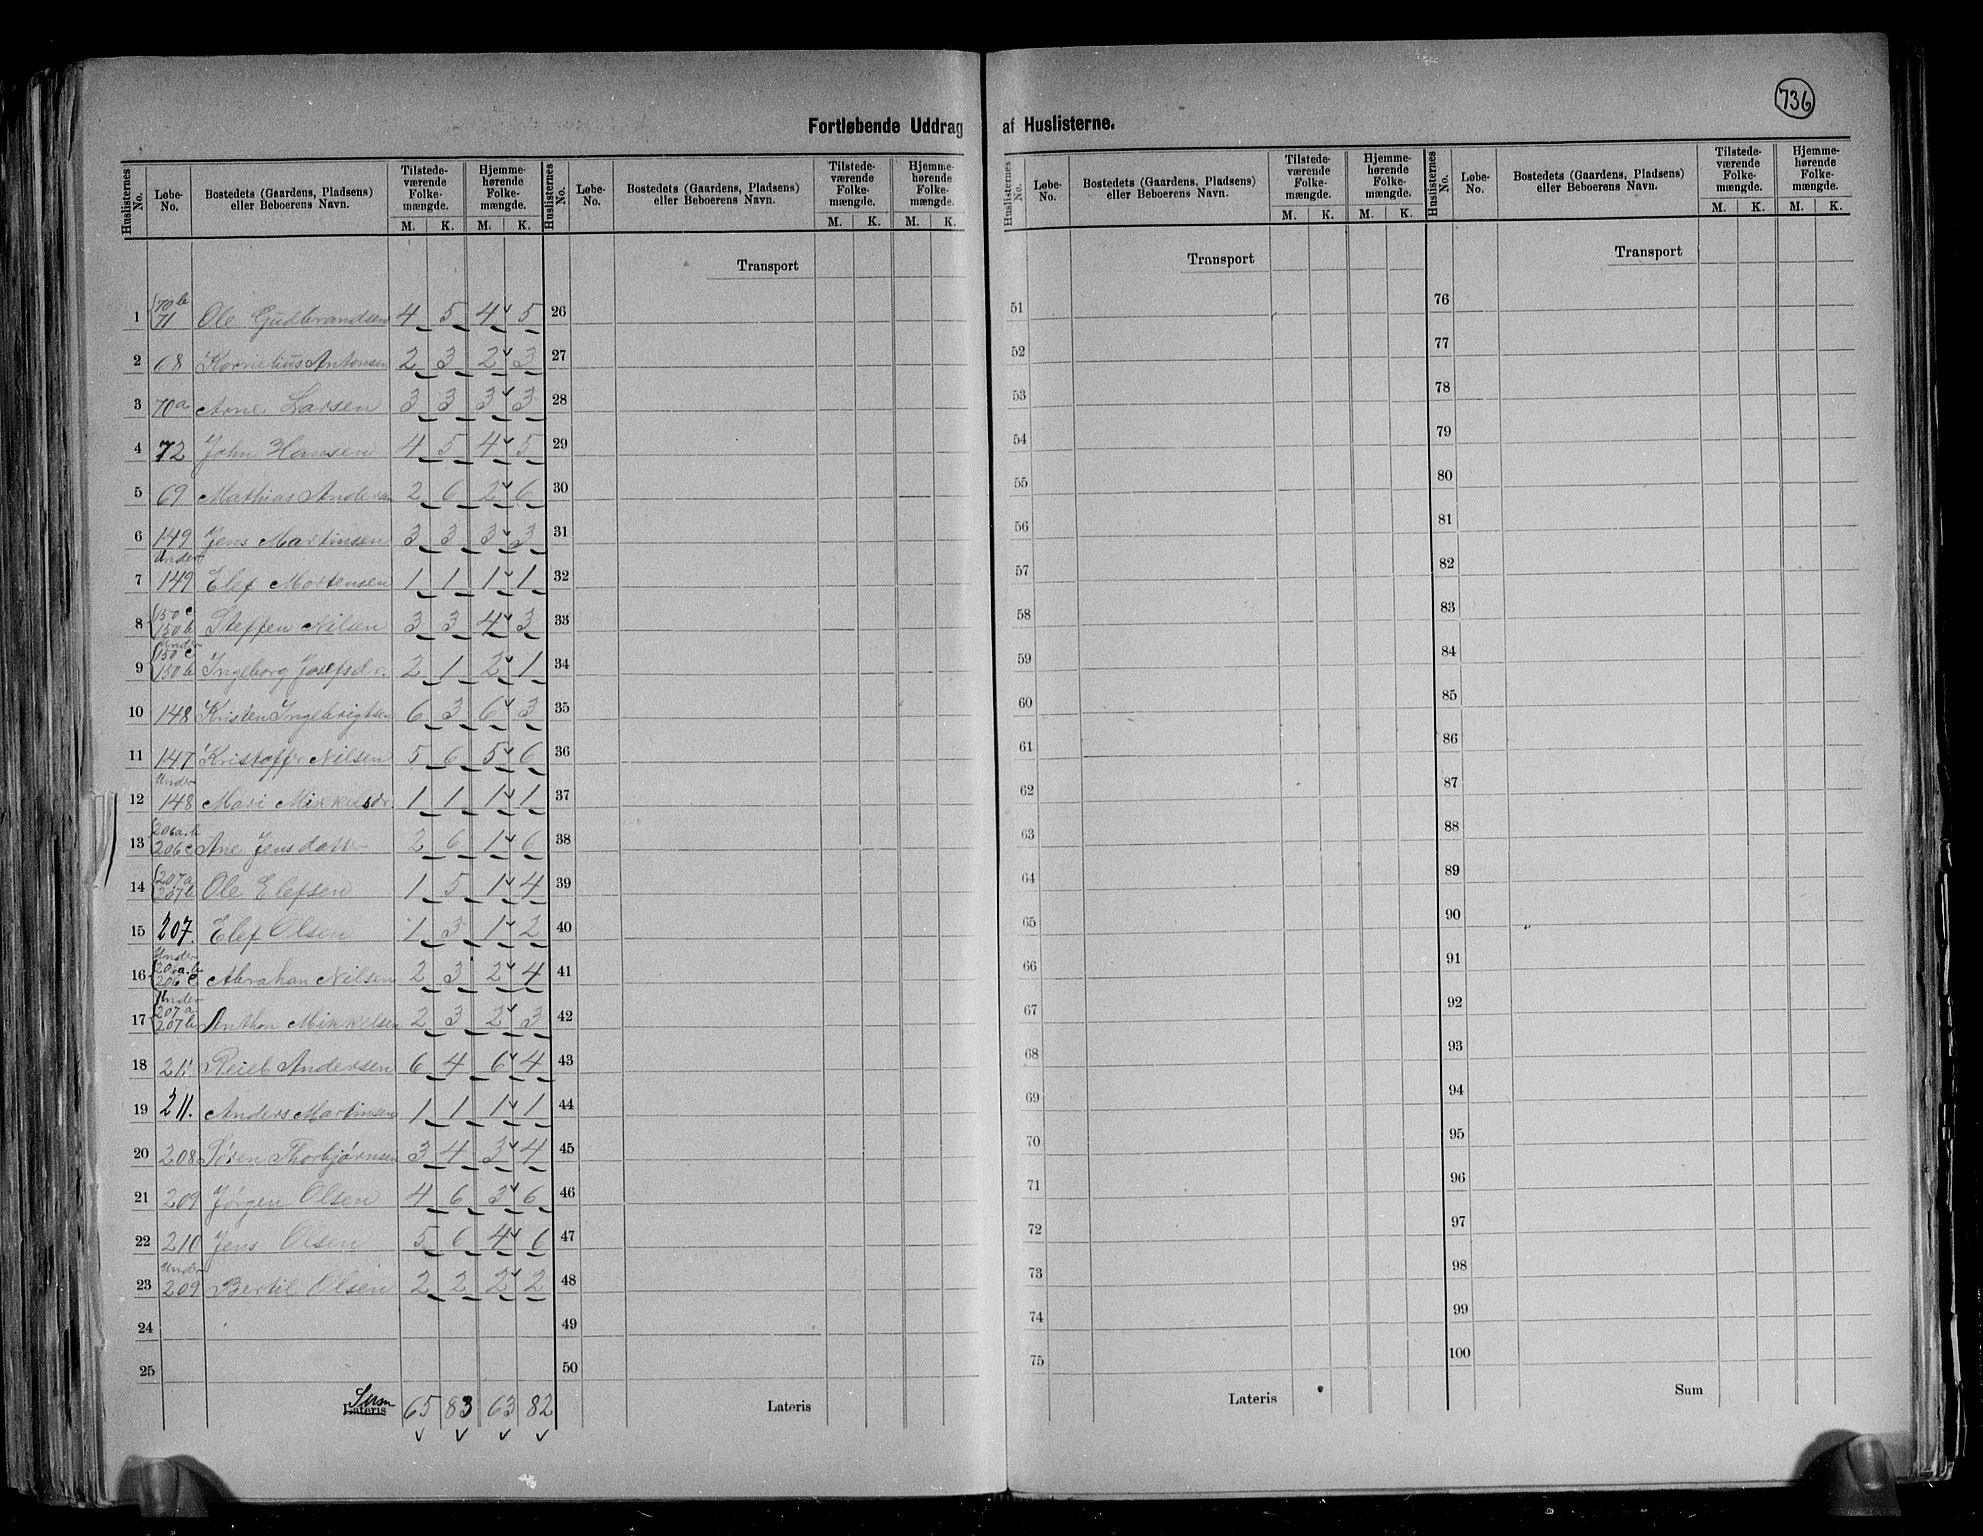 736
Fortløbende Uddrag af Huslisterne.
Huslisternes No. | Løbe-No. | Bostedets (Gaardens, Pladsens) eller Beboerens Navn. | Tilstedeværende Folkemængde. M. K. | Hjemmehørende Folkemængde. M. K.
Huslisternes No. | Løbe-No. | Bostedets (Gaardens, Pladsens) eller Beboerens Navn. | Tilstedeværende Folkemængde. M. K. | Hjemmehørende Folkemængde. M. K.
Huslisternes No. | Løbe-No. | Bostedets (Gaardens, Pladsens) eller Beboerens Navn. | Tilstedeværende Folkemængde. M. K. | Hjemmehørende Folkemængde. M. K.
Huslisternes No. | Løbe-No. | Bostedets (Gaardens, Pladsens) eller Beboerens Navn. | Tilstedeværende Folkemængde. M. K. | Hjemmehørende Folkemængde. M. K.
Transport Transport Transport
1 70b 71 Ole Gudbrandsen 4 5 4 5 26 51 76
2 68 Kornelius Antonsen 2 3 2 3 27 52 77
3 70a Arne Larsen 3 3 3 3 28 53 78
4 72 John Hansen 4 5 4 5 29 54 79
5 69 Mathias Andersen 2 6 2 6 30 55 80
6 149 Jens Martinsen 3 3 3 3 31 56 81
7 Under 149 Elef Mortensen 1 1 1 1 32 57 82
8 150c 150b Steffen Nilsen 3 3 4 3 33 58 83
9 Under 150c 150b Ingeborg Josefsdr. 2 1 2 1 34 59 84
10 148 Kristen Ingebrigtsen 6 3 6 3 35 60 85
11 147 Kristoffer Nilsen 5 6 5 6 36 61 86
12 Under 148 Mari Mikkelsdr. 1 1 1 1 37 62 87
13 206a.b 206c Ane Jensdatter 2 6 1 6 38 63 88
14 207a 207b Ole Elefsen 1 5 1 4 39 64 89
15 207. Elef Olsen 1 3 1 2 40 65 90
16 Under 206a.b 206c Abrahan Nilsen 2 3 2 4 41 66 91
17 Under 207a 207b Anthon Mikkelsen 2 3 2 3 42 67 92
18 211 Reiel Andersen 6 4 6 4 43 68 93
19 211. Anders Martinsen 1 1 1 1 44 69 94
20 208 Sören Thorbjørnsen 3 4 3 4 45 70 95
21 209 Jørgen Olsen 4 6 3 6 46 71 96
22 210 Jens Olsen 5 6 4 6 47 72 97
23 Under 209 Bertil Olsen 2 2 2 2 48 73 98
24 49 74 99
25 50 75 100
Sum Lateris 65 83 63 82 Lateris Lateris Sum